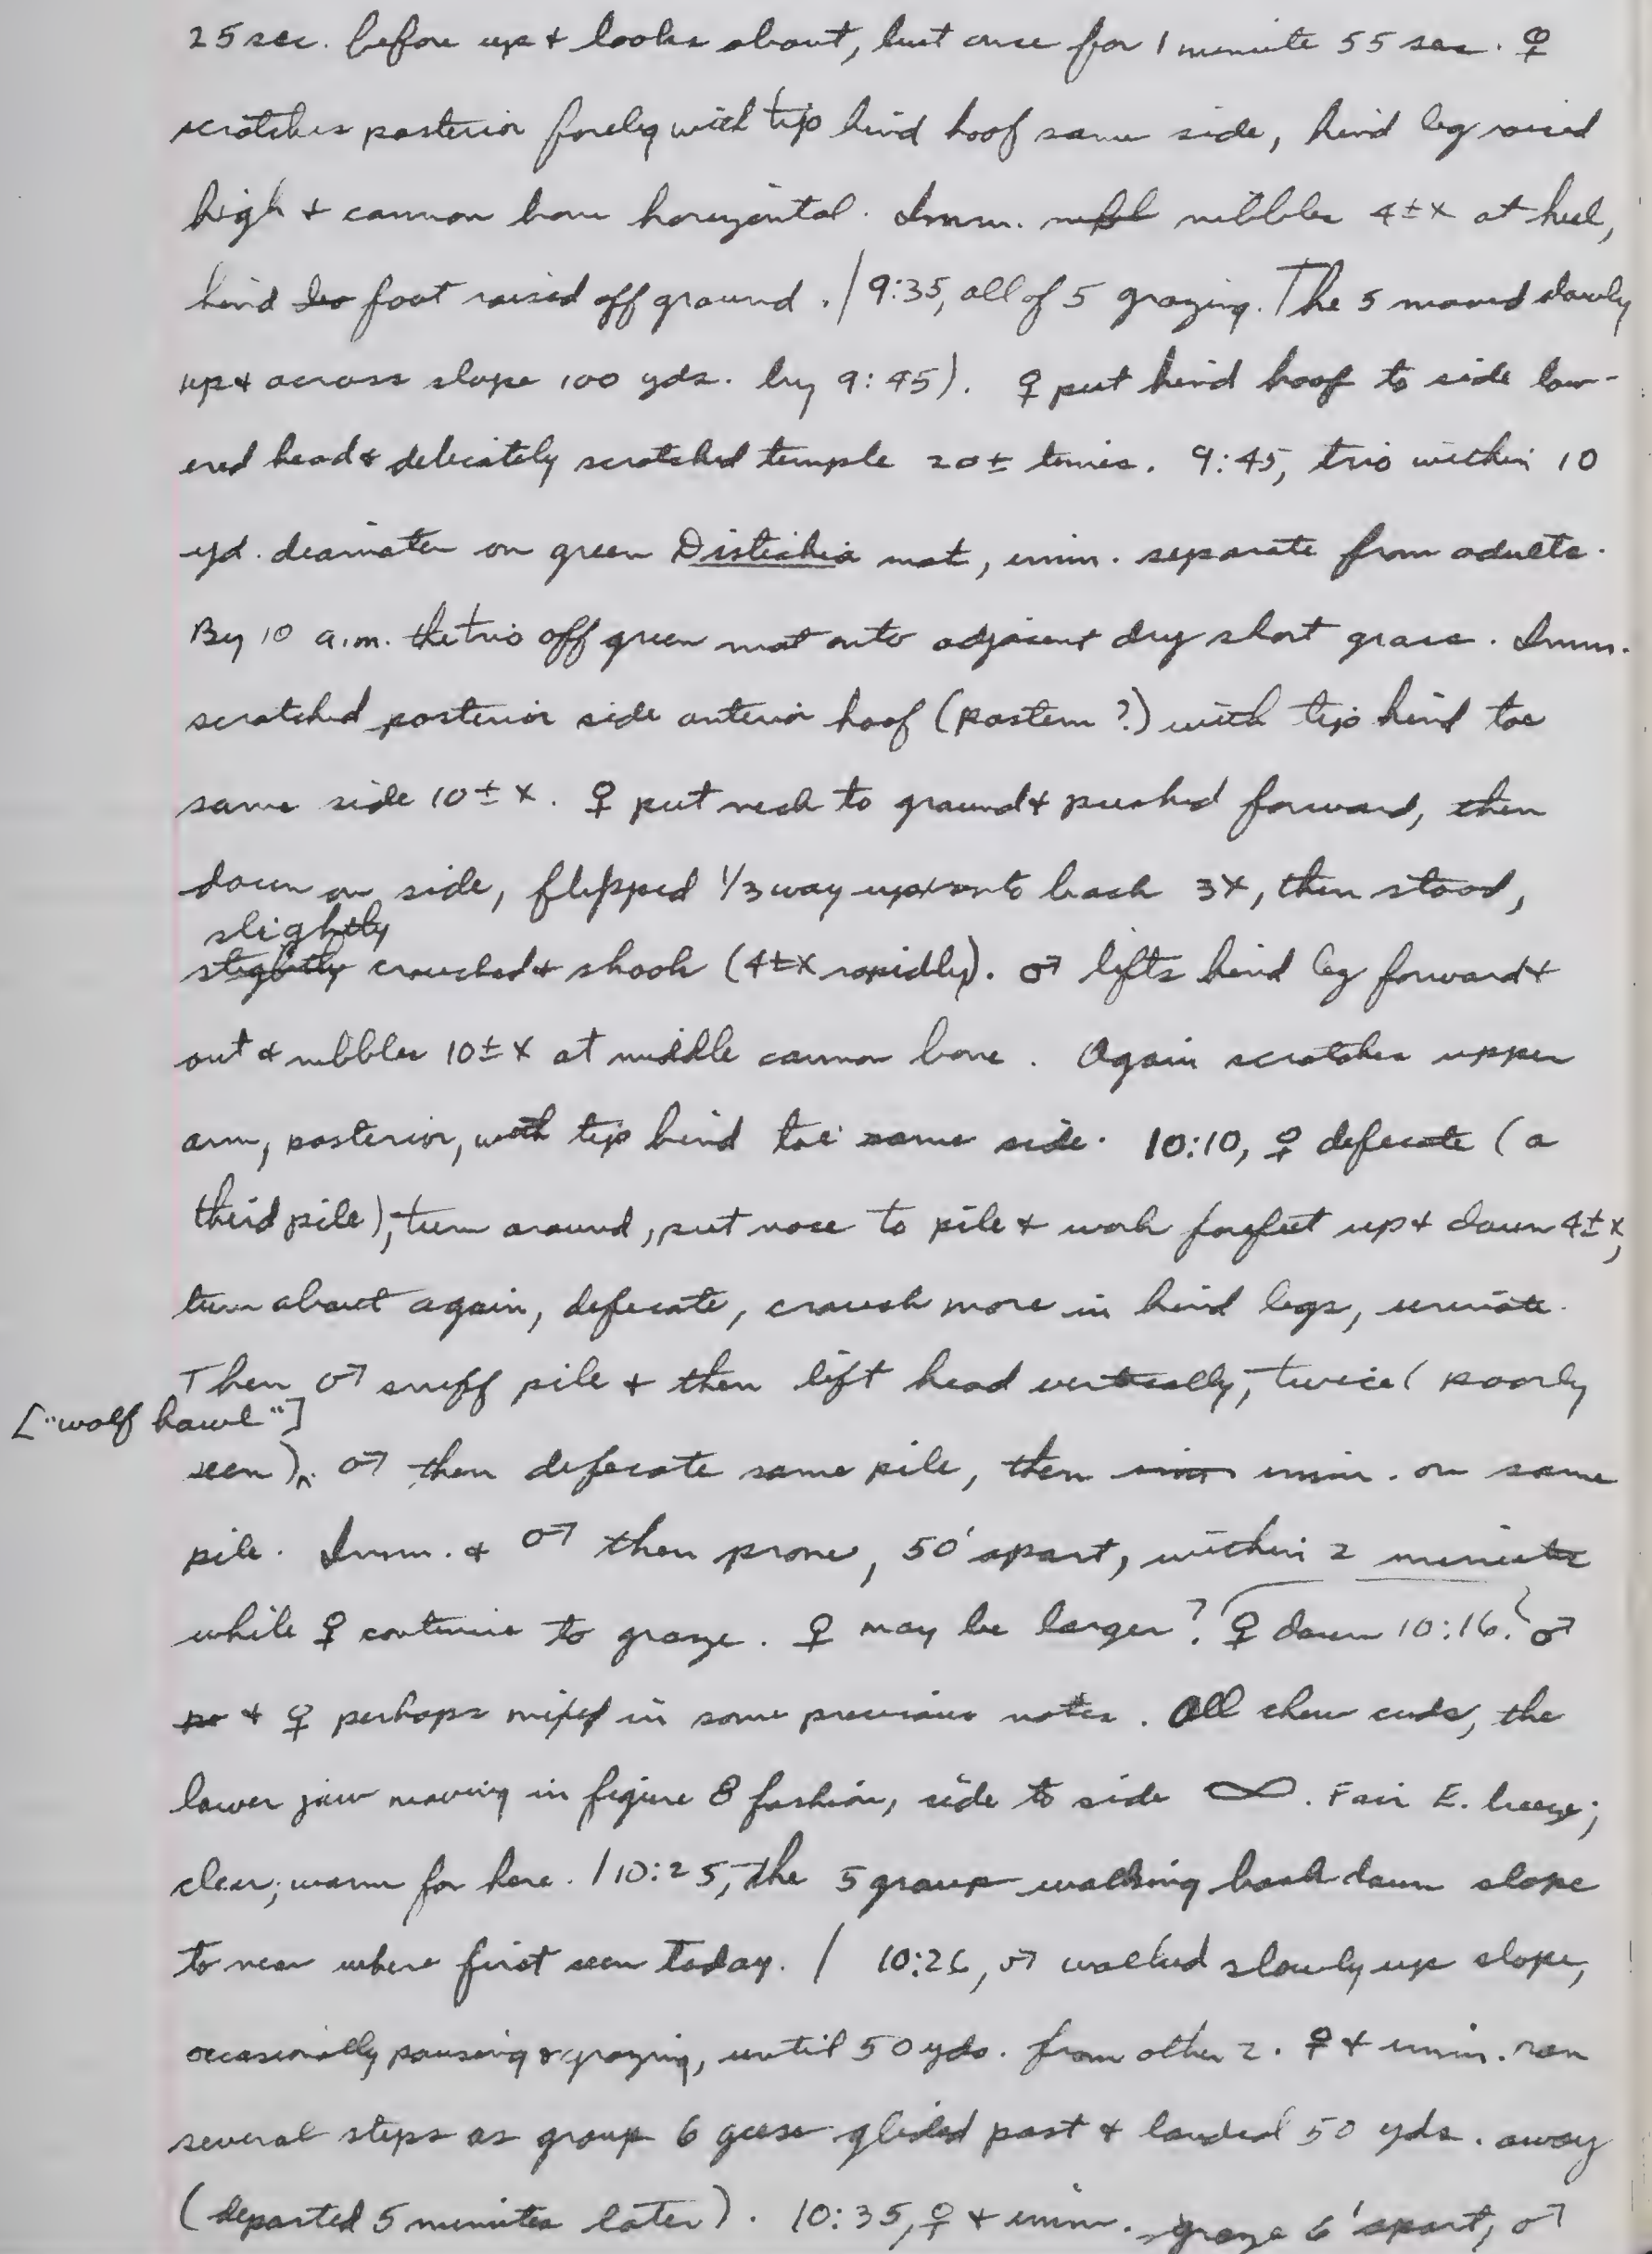 25 sec. before up & looks about, but once for 1 minute 55 sec. ♀
scratches posterior foreleg with tip hind hoof same side, hind leg raised
high & cannon bone horizontal. Imm. nibbles 4±x at heel,
hind foot raised off ground. / 9:35, all of 5 grazing. The 5 moved slowly
up & across slope 100 yds. by 9:45). ♀ put hind hoof to side low-
ered head & delicately scratched temple 20± times. 9:45, trio within 10
yd. deamater on green Distichia mat, imm. separate from adults.
By 10 a.m. the trio off green mat onto adjacent dry short grass. Imm.
scratched posterior side anterior hoof (pastern?) with tip hind toe
same side 10±x. ♀ put neck to ground & pushed forward, then
down on side, flipped 1/3 way up onto back 3x, then stood,
slightly
slightly crouched & shook (4±x rapidly). ♂ lifts hind leg forward &
out & nibbles 10±x at middle cannon bone. Again scratches upper
arm, posterior, with tip hind toe same side. 10:10, ♀ defecate (a
third pile), turn around, put nose to pile & work forefeet up & down 4±x,
turn about again, defecate, crouch more in hind legs, urinate.
Then ♂ sniff pile & then lift head vertically, twice (poorly
["wolf howl"]
seen). ♂ then defecate same pile, then imm. on same
pile. Imm. & ♂ then prone, 50' apart, within 2 minutes
while ♀ continue to graze. ♀ may be larger? ♀ down 10:16. ♂
& ♀ perhaps mixed in some previous notes. All chew cuds, the
lower jaw moving in figure 8 fashion, side to side ∞. Fair E. breeze;
clear; warm for here. / 10:25, the 5 group walking back down slope
to near where first seen today. / 10:26, ♂ walked slowly up slope,
occasionally pausing & grazing, until 50 yds. from other 2. ♀ & imm. ran
several steps as group 6 geese glided past & landed 50 yds. away
(departed 5 minutes later). 10:35, ♀ & imm. graze 6' apart, ♂